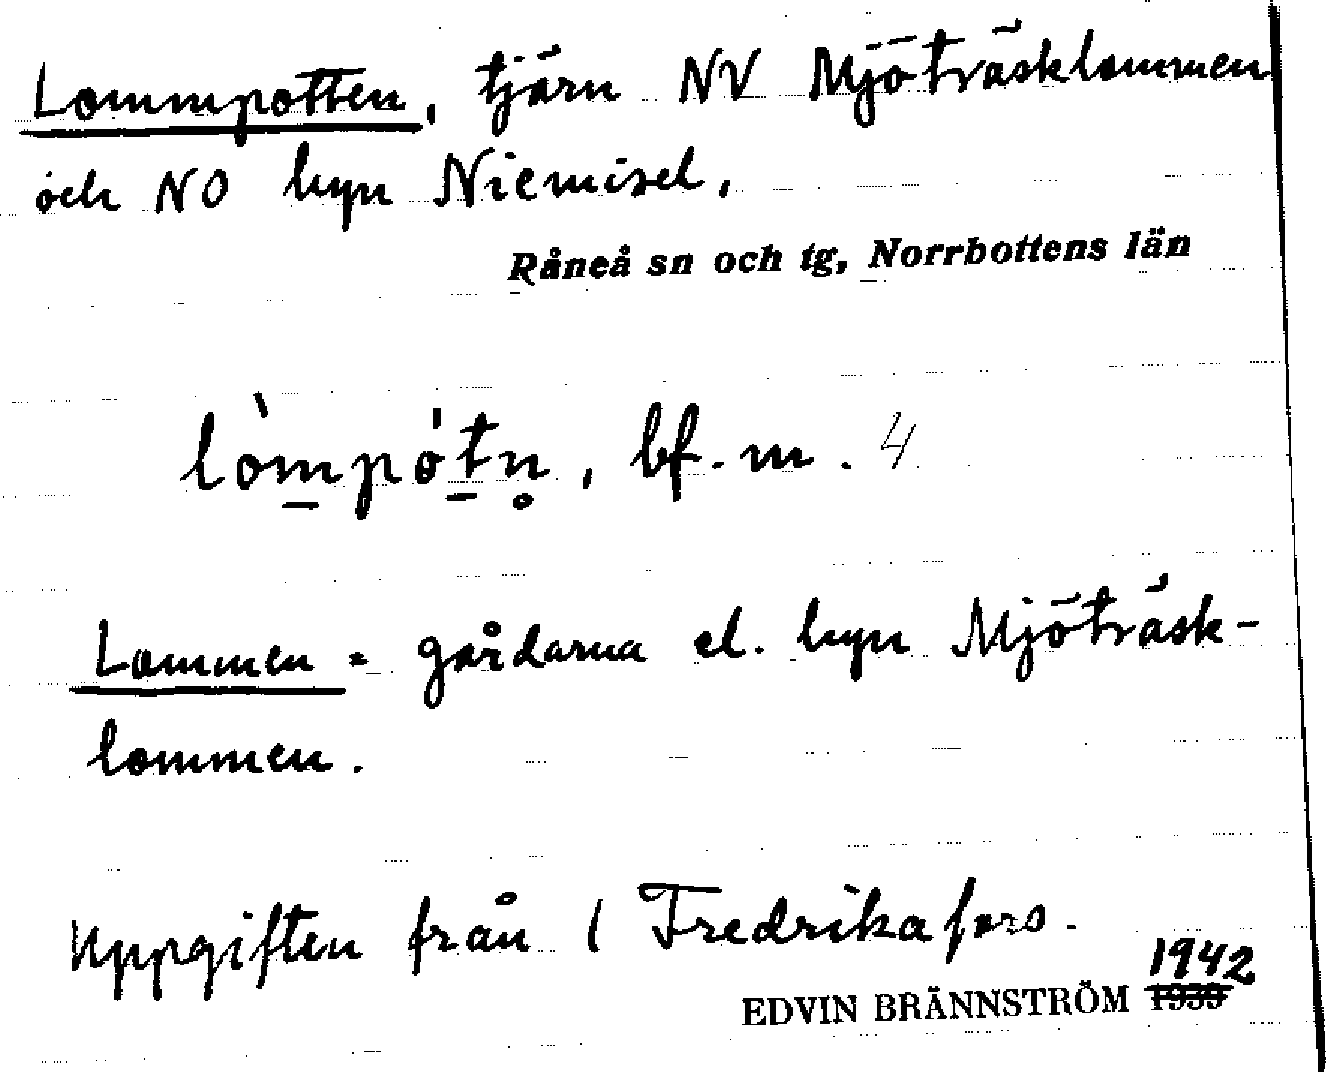 Lommpotten, tjärn NV Mjöträsklommen
och NO byn Niemisel,
Råneå sn och tg, Norrbottens län
lò̀m̲pót̲n̥, bf. m. 4
Lommen = gårdarna el. byn Mjöträsk-
lommen.
Uppgiften från 1 Fredrikafors.
1942
EDVIN BRÄNNSTRÖM 1939